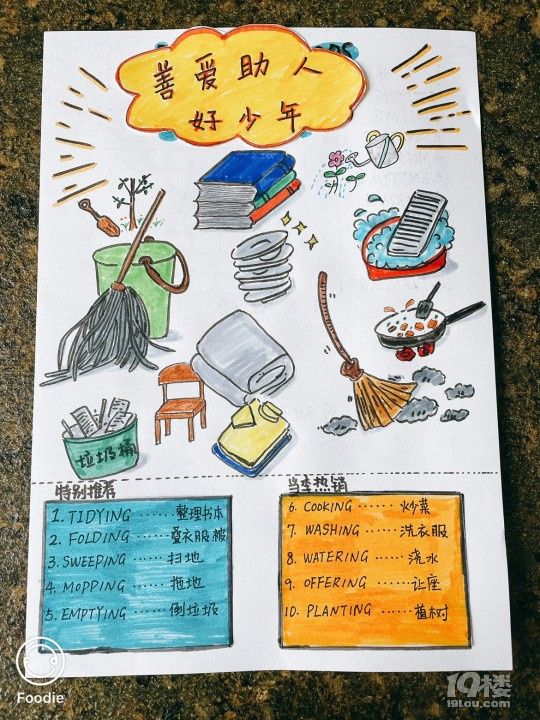 善爱助人
好少年
垃圾桶
特别推荐
1. TIDYING ······ 整理书本
2. FOLDING ······ 叠衣服被
3. SWEEPING ······ 扫地
4. MOPPING ······ 拖地
5. EMPTYING ······ 倒垃圾
当季热销
6. COOKING ······ 炒菜
7. WASHING ······ 洗衣服
8. WATERING ····· 浇水
9. OFFERING ······ 让座
10. PLANTING ······ 植树
Foodie
19楼
19lou.com